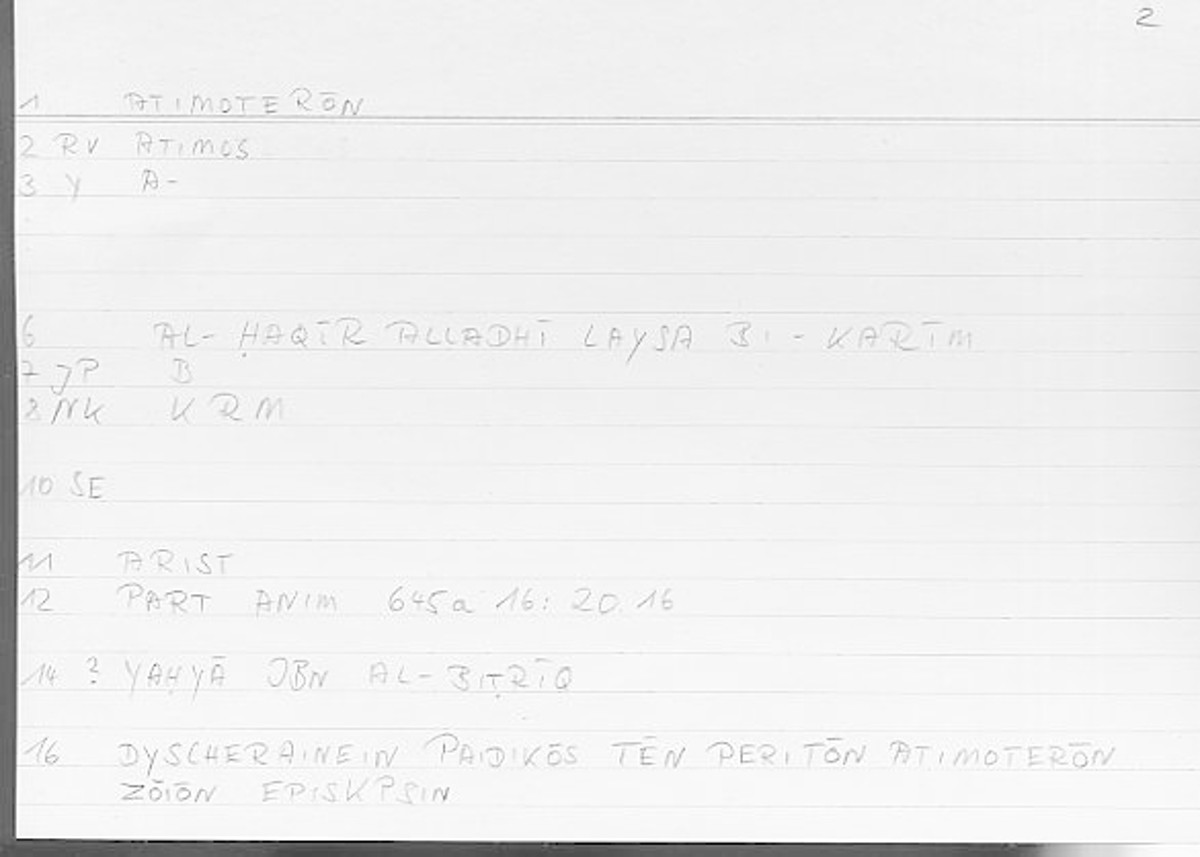 2
1 ATIMOTERŌN
2 RV ATIMOS
3 Y A-
6 AL-ḤAQĪR ALLADHĪ LAYSA BI-KARĪM
7 JP B
8 NK KRM
10 SE
11 ARIST
12 PART ANIM 645a 16: 20.16
14 ? YAḤYĀ IBN AL-BIṬRĪQ
16 DYSCHERAINEIN PAIDIKŌS TĒN PERI TŌN ATIMOTERŌN
ZŌIŌN EPISKPSIN